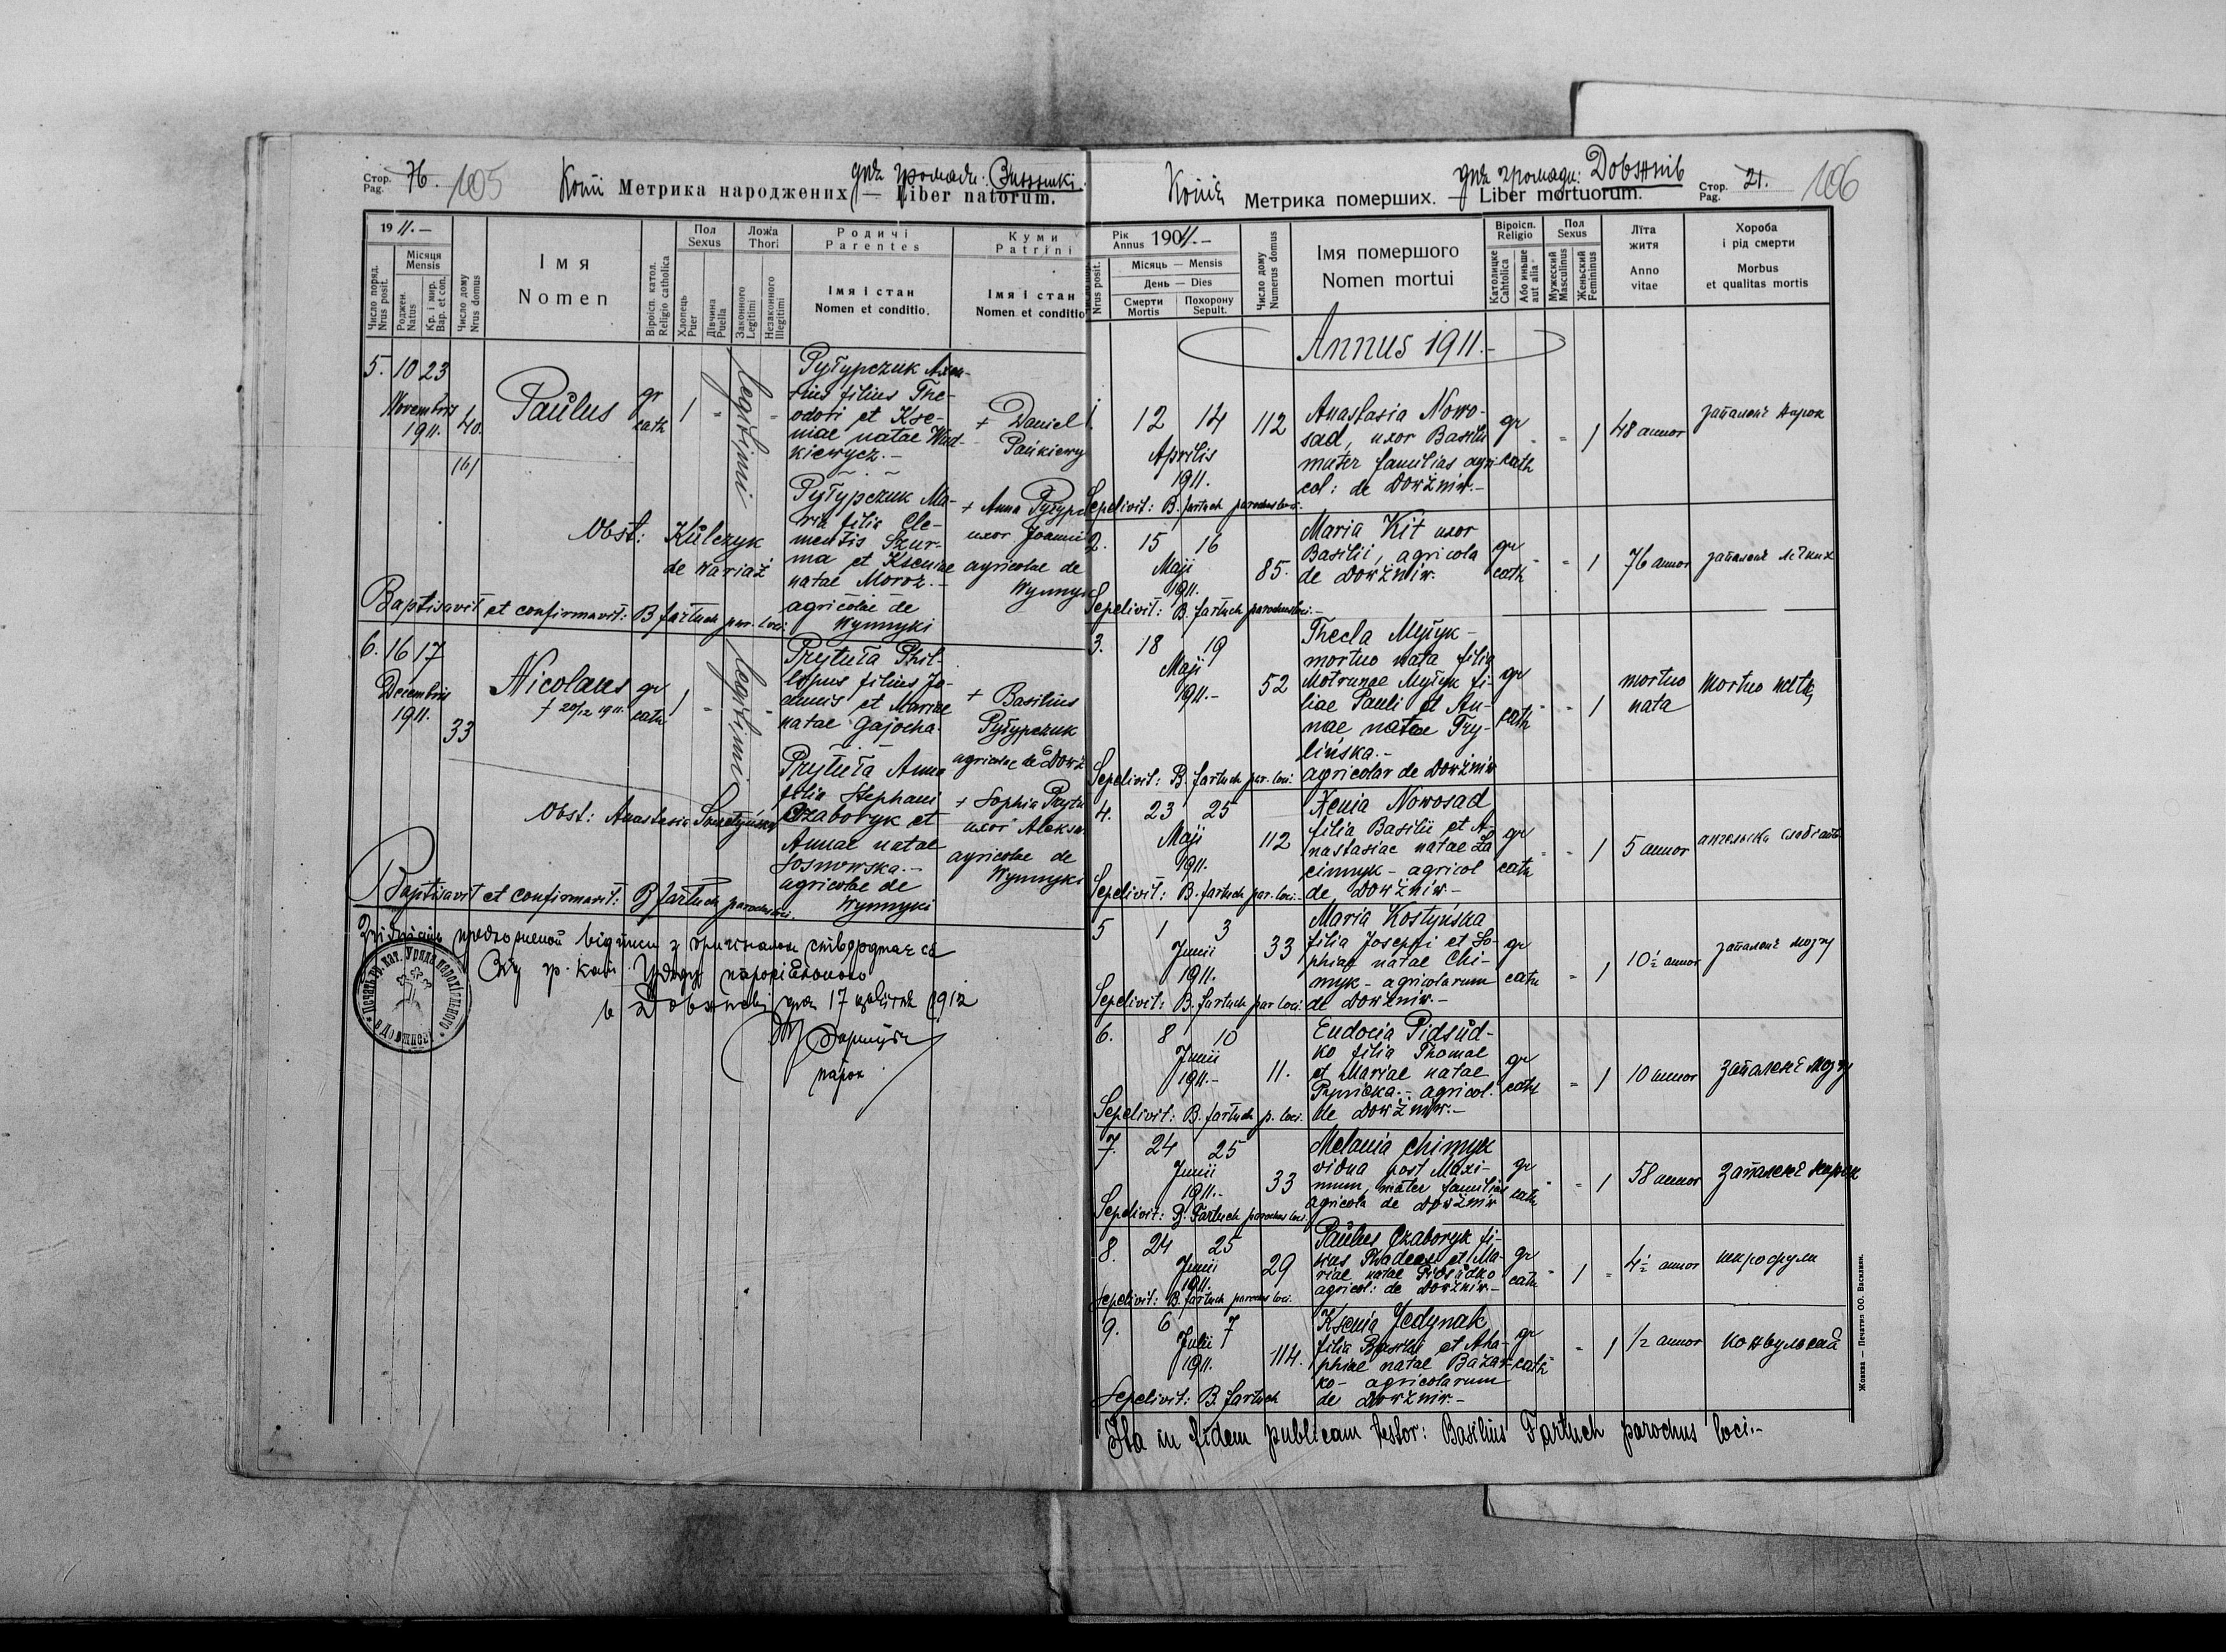 Стор. Pag. 76. 105
Копія Метрика народжених — Liber natorum. для громади: Винники
19 11.—
Число поряд. Nrus posit.
Місяця Mensis
Роджен. Natus
Кр. і мир. Bap. et con.
Число дому Nrus domus
Імя
Nomen
Віроісп. катол. Religio catholica
Пол Sexus
Хлопець Puer
Дівчина Puella
Ложа Thori
Законного Legitimi
Незаконного Illegitimi
Родичі
Parentes
Імя і стан
Nomen et conditio.
Куми
Patrini
Імя і стан
Nomen et conditio
5. 10 23
Novembris
1911. 40.
Paulus
gr cath
1
legitimi
Pyłypczuk
filius The-
odori et Kse-
niae natae
kiewycz.—
Pyłypczuk Ma-
ria filia Cle-
mentis Szur-
ma et Kseniae
natae Moroz.—
agricolae de
Wynnyki
+ Daniel
+ Anna
uxor
agricolae de
Obst: Kulczyk
de Wariaż
Baptisavit et confirmavit: B fartuch par. loci
6. 16 17
Decembris
1911. 33
Nicolaus
† 20/12 1911.
gr cath
1
legitimi
Prytuła Phil-
filius Jo-
annis et Mariae
natae Gajocha.
Prytuła Anna
filia Stephani
Czaboryk et
Annae natae
Sosnowska.—
agricolae de
Wynnyki
+ Basilius
Pyłypczuk
agricolae de
+ Sophia
uxor
agricolae de
Wynnyki
Obst: Anastasia
Baptisavit et confirmavit: B fartuch parochus loci.
відпису з оригіналом
гр. кат. Уряду парохіяльного
в Довжневі дня 17 цвітня 1912
В Фартух
парох
Печать гр. кат. Уряда парохіяльного в Довжневі
Копія Метрика померших. — Liber mortuorum. для громади: Довжнів
Стор. Pag. 21. 106
Рік Annus 1911.—
Nrus posit.
Місяць — Mensis
День — Dies
Смерти Mortis
Похорону Sepult.
Число дому Numerus domus
Імя помершого
Nomen mortui
Віроісп. Religio
Католицке Cahtolica
Або иньше aut alia
Пол Sexus
Мужеский Masculinus
Женьский Femininus
Літа житя
Anno vitae
Хороба і рід смерти
Morbus et qualitas mortis
Annus 1911.—
1. 12 14 112
Aprilis
1911.
Anastasia Nowo-
sad, uxor Basilii
mater familias agri-
col: de Dowżniw.—
gr cath
1 48 annor запаленє нирок
Sepelivit: B. fartuch parochus loci.
2. 15 16 85.
Maji
1911.
Maria Kit uxor
Basilii, agricola
de Dowżniw.
gr cath
1 76 annor запаленє легких
Sepelivit: B. fartuch parochus loci.—
3. 18 19 52
Maji
1911.—
Thecla Mełyk—
mortuo nata filia
Motrunae Mełyk fi-
liae Pauli et An-
nae natae Try-
lińska.—
agricolar de Dowżniw
gr cath
1 mortuo nata
mortuo nata
Sepelivit: B. fartuch par. loci.
4. 23 25 112
Maji
1911.
Xenia Nowosad
filia Basilii et A-
nastasiae natae Za
cimnyk — agricol
de Dowżniw—
gr cath
1 5 annor ангельска слабість
Sepelivit: B. fartuch par. loci.—
5 1 3 33
Junii
1911.
Maria Kostyńska
filia Josephi et So-
phiae natae Chi-
myk — agricolarum
de Dowżniw.—
gr cath
1 10½ annor запаленє мозгу
Sepelivit: B. fartuch par loci.
6. 8 10 11.
Junii
1911.—
Eudocia Pidsud-
ko filia Thomae
et Mariae natae
agricol.
de Dowżniw.—
gr cath
1 10 annor запаленє мозгу
Sepelivit: B. fartuch p. loci.
7. 24 25 33
Junii
1911.—
Melania Chimyk
vidua post Maxi-
mum, mater familias
agricola de Dowżniw
gr cath
1 58 annor запаленє нирок
Sepelivit: B. Fartuch parochus loci.
8. 24 25 29
Junii
1911.
Paulus Czaboryk fi-
lius Thadeei et Ma-
riae natae Pidsudko
agricol: de Dowżniw—
gr cath
1 4½ annor шкрофули
Sepelivit: B. fartuch parochus loci.
9. 6 7 114.
Julii
1911.
Ksenia Jedynak
filia Basilii et Aha-
phiae natae Bazar-
ko — agricolarum
de Dowżniw.—
gr cath
1 1/2 annor конвульсиї
Sepelivit: B. fartuch
Ita in fidem publicam testor: Basilius Fartuch parochus loci.—
Жовква — Печатня ОО. Василиян.